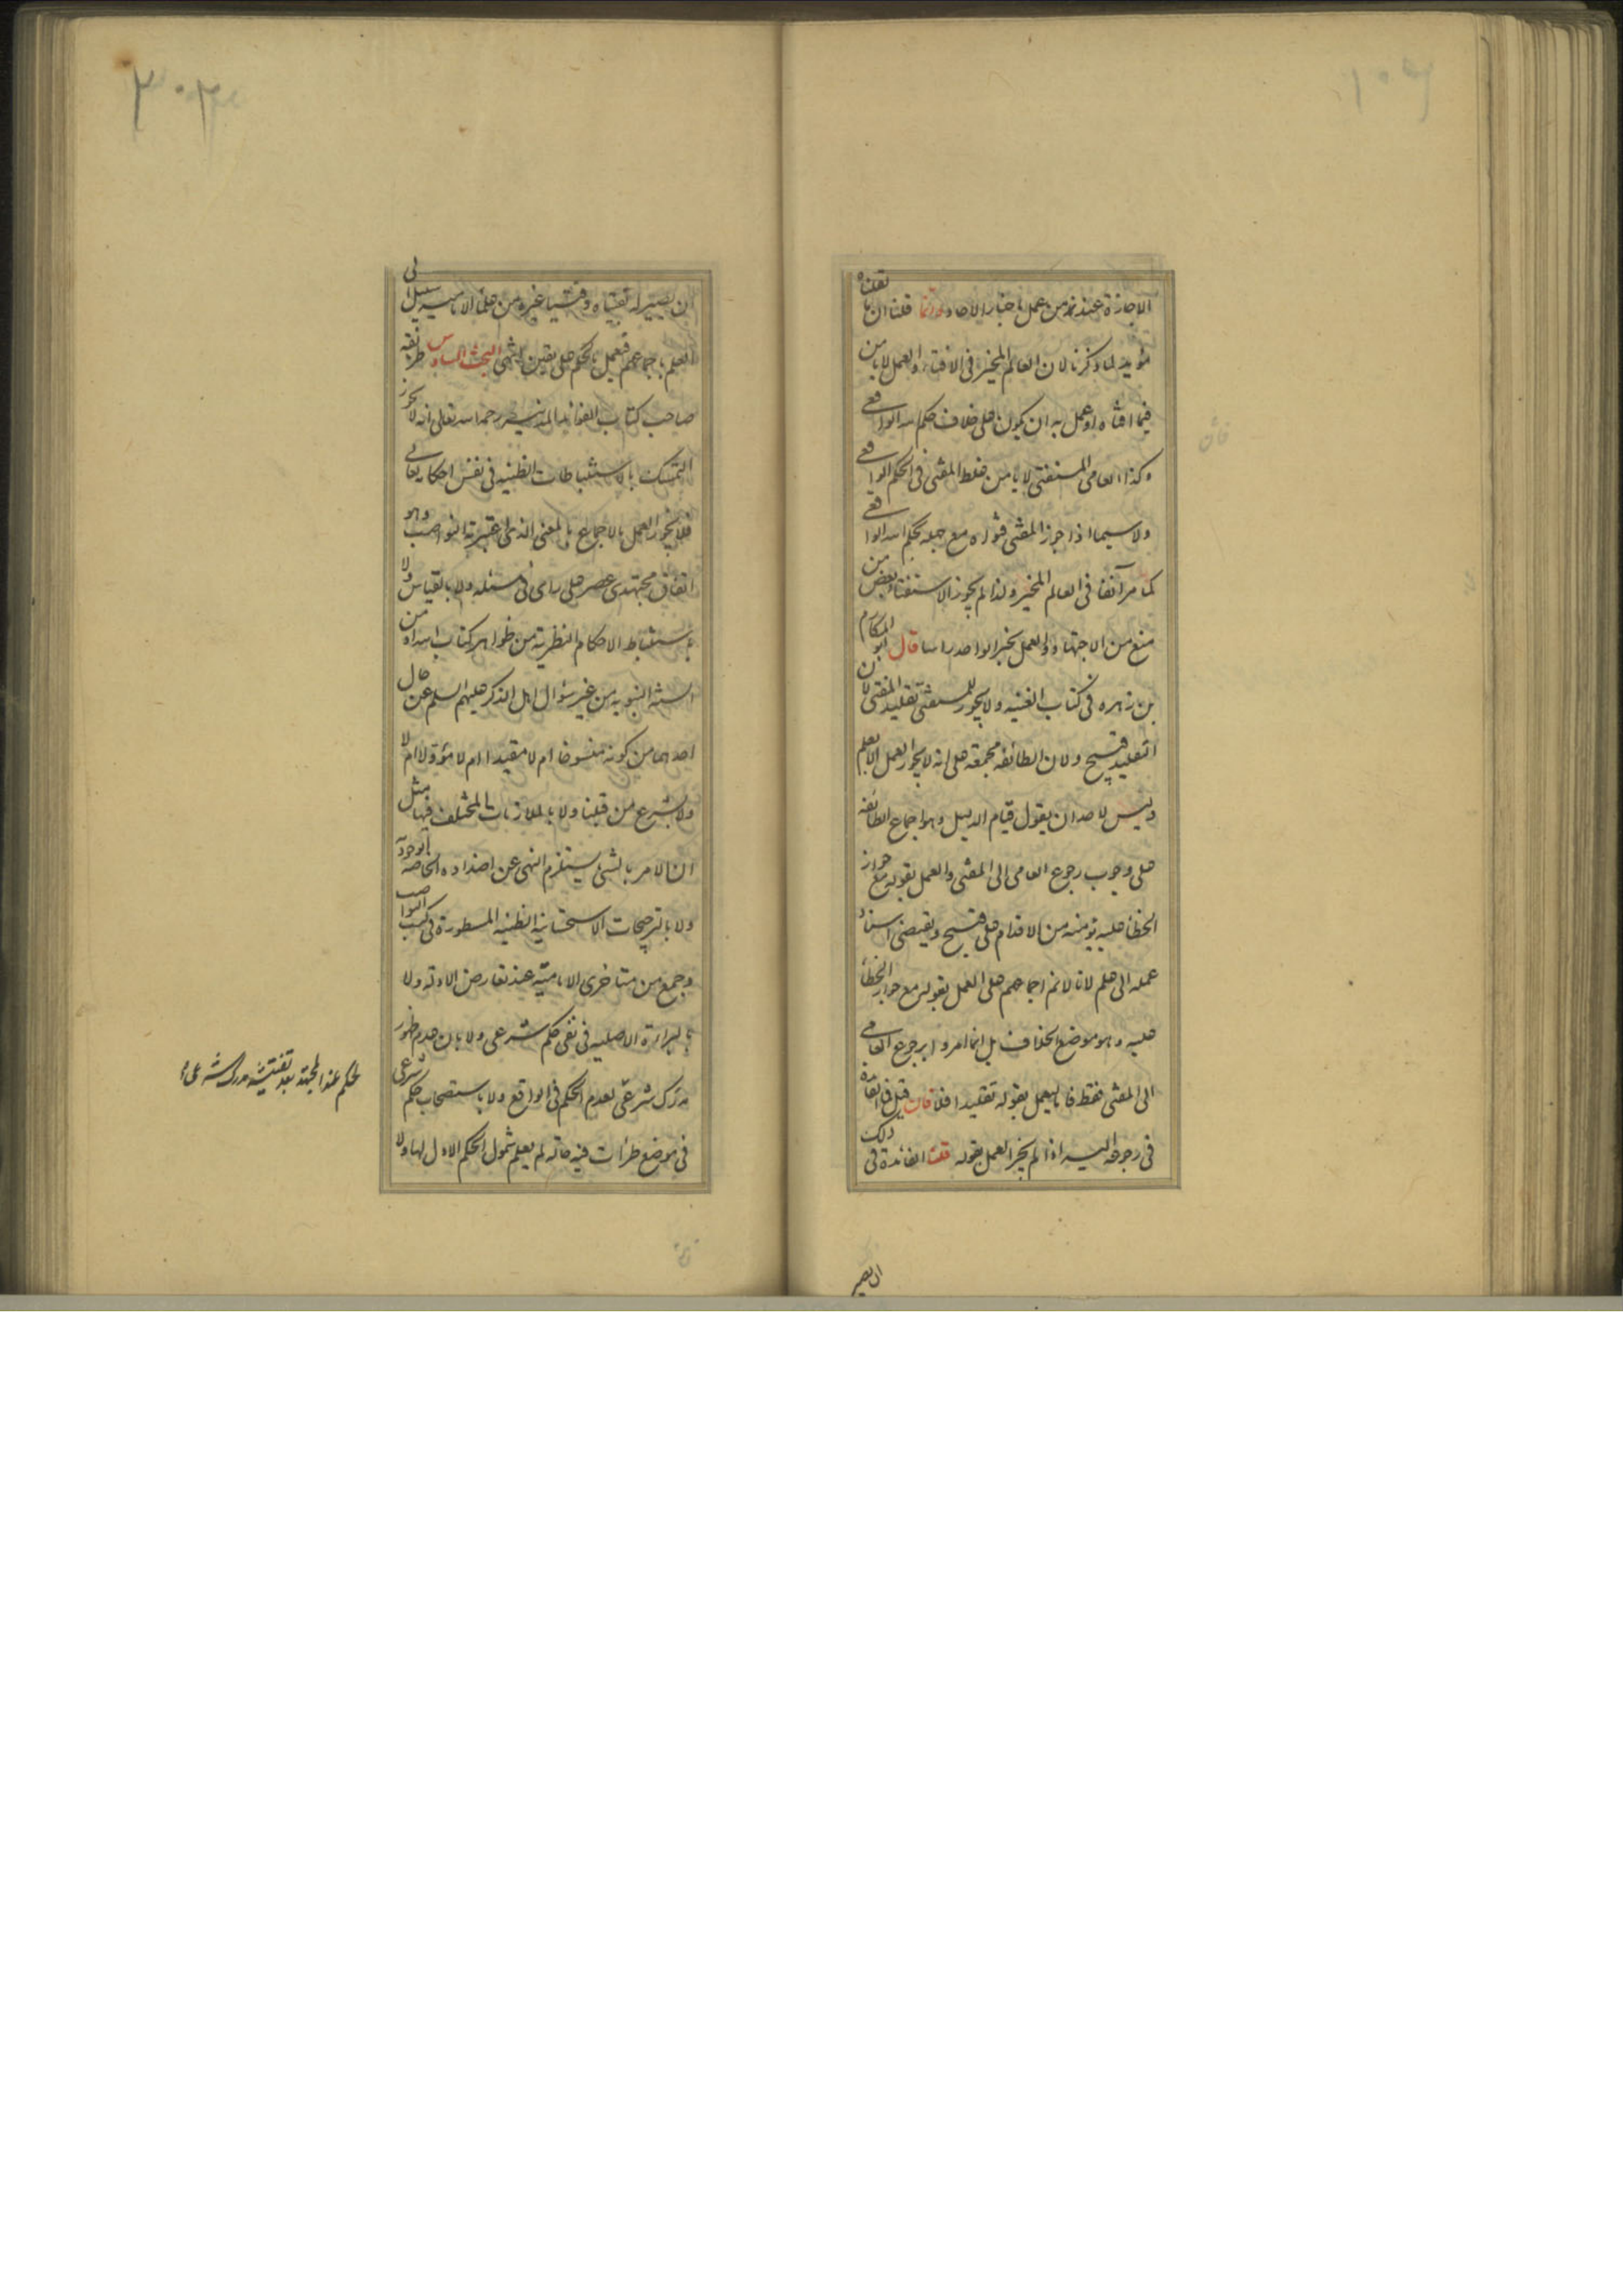 الاجازة عند من عمل باخبار الاحاد وانما قلنا ان ما نقلناه
مؤيد لما ذكرنا لان العالم المخير فى الافتاء والعمل لا يأمن
فيما افتاه او عمل به ان يكون على خلاف حكم الله الواقعى
وكذا العامى المستفتى لا يأمن غلط المفتى فى الحكم الواقعى
ولا سيما اذا جوز المفتى فتواه مع جهله بحكم الله الواقعى
كما مر آنفا فى العالم المخير ولذا لم يجوز الاستفتاء بعض من
منع من الاجتهاد والعمل بخبر الواحد راسا قال ابو المكارم
بن زهره فى كتاب الغنيه ولا يجوز للمستفتى تقليد المفتى لان
التقليد قبيح ولان الطائفه مجمعة على انه لا يجوز العمل الا بعلم
وليس لاحد ان يقول قيام الدليل وهو اجماع الطائفه
على وجوب رجوع العامى الى المفتى والعمل بقوله مع جواز
الخطأ عليه يؤمنه من الاقدام على قبيح ويقتضى اسناد
عمله الى علم لانا لا نم اجماعهم على العمل بقوله مع جواز الخطأ
عليه وهو موضع الخلاف بل انما امروا برجوع العامى
الى المفتى فقط فاما ليعمل بقوله تقليدا فلا فان قيل فما الفائدة
فى رجوعه اليه اذا لم يجز العمل بقوله قلنا الفائدة فى ذلك
ان يصير
ان يصير له بفتياه وفتيا غيره من علماء الاماميه سبيل الى
العلم باجماعهم فيعمل بالحكم على يقين انتهى البحث السادس طريقه
صاحب كتاب الفوائد المدنيه رحمه الله تعالى انه لا يجوز
التمسك بالاستنباطات الظنيه فى نفس احكامه تعالى
فلا يجوز العمل بالاجماع بالمعنى الذى اعتبرته النواصب وهو
اتفاق مجتهدى عصر على راى فى مسئله ولا بالقياس ولا
باستنباط الاحكام النظرية من ظواهر كتاب الله او من
السنه النبويه من غير سؤال اهل الذكر عليهم السلم عن حال
احدهما من كونه منسوخا ام لا مقيدا ام لا مؤولا ام لا
ولا بشرع من قبلنا ولا بالملازمات المختلف فيها مثل
ان الامر بالشئ يستلزم النهى عن اضداده الخاصه الوجودية
ولا بالترجيحات الاستحسانيه الظنيه المسطورة فى كتب النواصب
وجمع من متاخرى الاماميّة عند تعارض الادلة ولا
بالبراءة الاصليه فى نفى حكم شرعى ولا بان عدم ظهور
مدرك شرعى لعدم الحكم فى الواقع ولا باستصحاب حكم شرعى
فى موضع طرأت فيه حالة لم يعلم شمول الحكم الاول لها ولا
لحكم عند المجتهد بعد تفتيشه مدرك شرعى